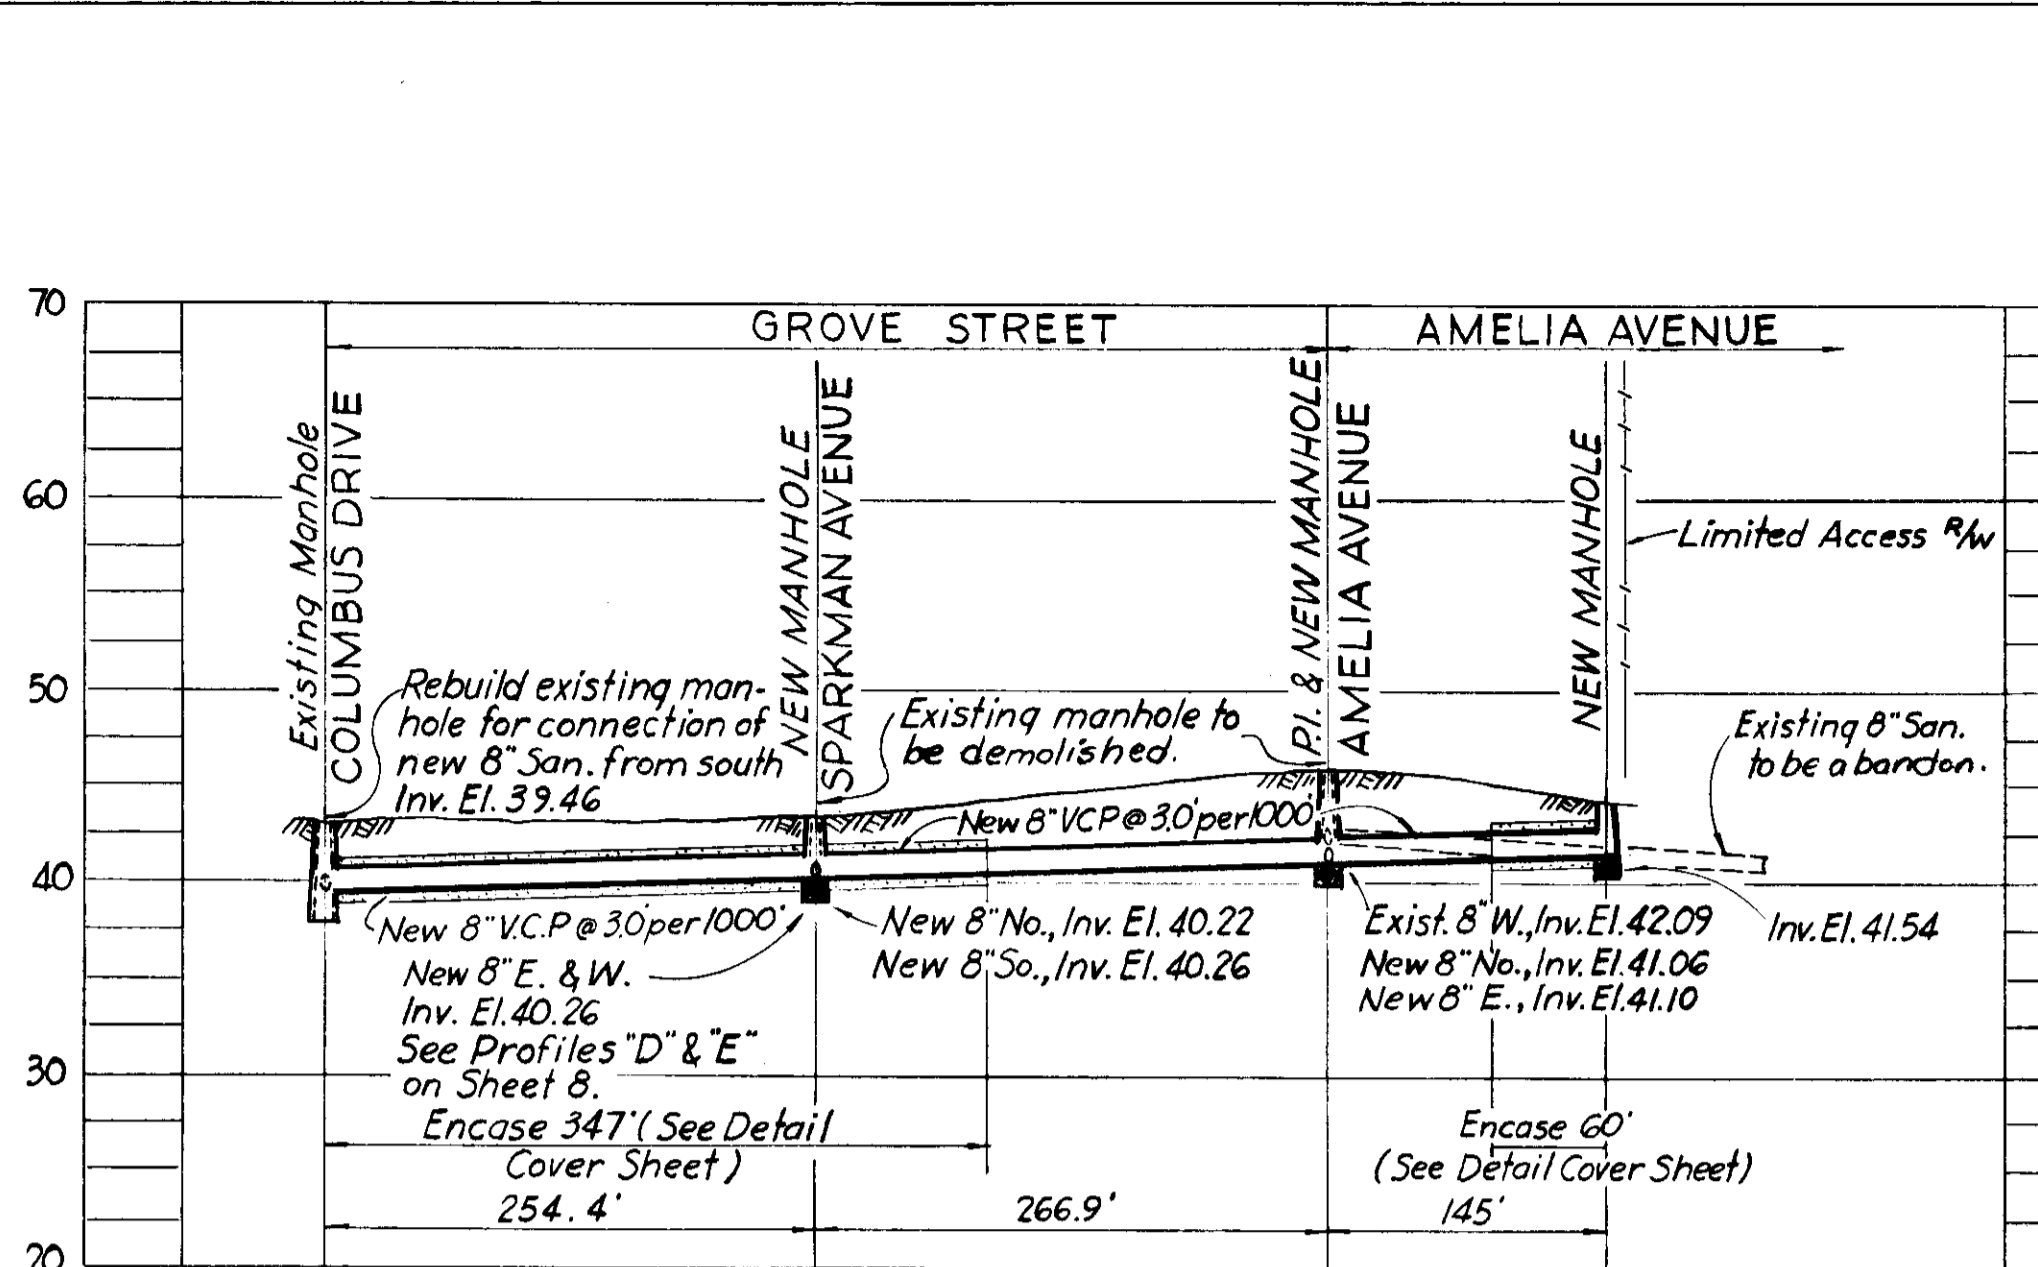 70
GROVE STREET
AMELIA AVENUE
Existing Manhole
COLUMBUS DRIVE
NEW MANHOLE
SPARKMAN AVENUE
P.I. & NEW MANHOLE
AMELIA AVENUE
NEW MANHOLE
60
Limited Access R/W
50
Rebuild existing man-
hole for connection of
new 8" San. from south
Inv. El. 39.46
Existing manhole to
be demolished.
Existing 8" San.
to be abandon.
New 8" VCP @ 3.0' per 1000'
40
New 8" V.C.P @ 3.0' per 1000'
New 8" E. & W.
Inv. El. 40.26
See Profiles "D" & "E"
on Sheet 8.
New 8" No., Inv. El. 40.22
New 8" So., Inv. El. 40.26
Exist. 8" W., Inv. El. 42.09
New 8" No., Inv. El. 41.06
New 8" E., Inv. El. 41.10
Inv. El. 41.54
30
Encase 347' (See Detail
Cover Sheet)
Encase 60'
(See Detail Cover Sheet)
254.4'
266.9'
145'
20